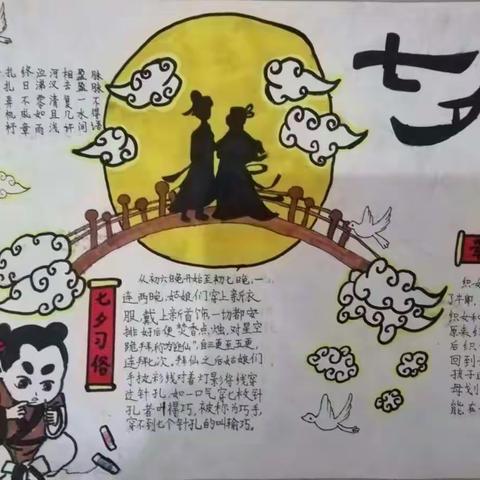 七夕
扎扎弄机杼
终日不成章
泣涕零如雨
河汉清且浅
相去复几许
盈盈一水间
脉脉不得语
七夕习俗
从初六晚开始至初七晚,一
连两晚,姑娘们穿上新衣
服,戴上新首饰一切都安
排好后便焚香点烛,对星空
跪拜称为“迎仙”,自三更至五更,
连拜七次,拜仙之后姑娘们
手执彩线对着灯影将线穿
过针孔,如一口气穿七枚针
孔者叫得巧,被称为巧手,
穿不到七个针孔的叫输巧。
织女
了牛郎,
织女和
原来
后织
回到
孩子
母划
能在